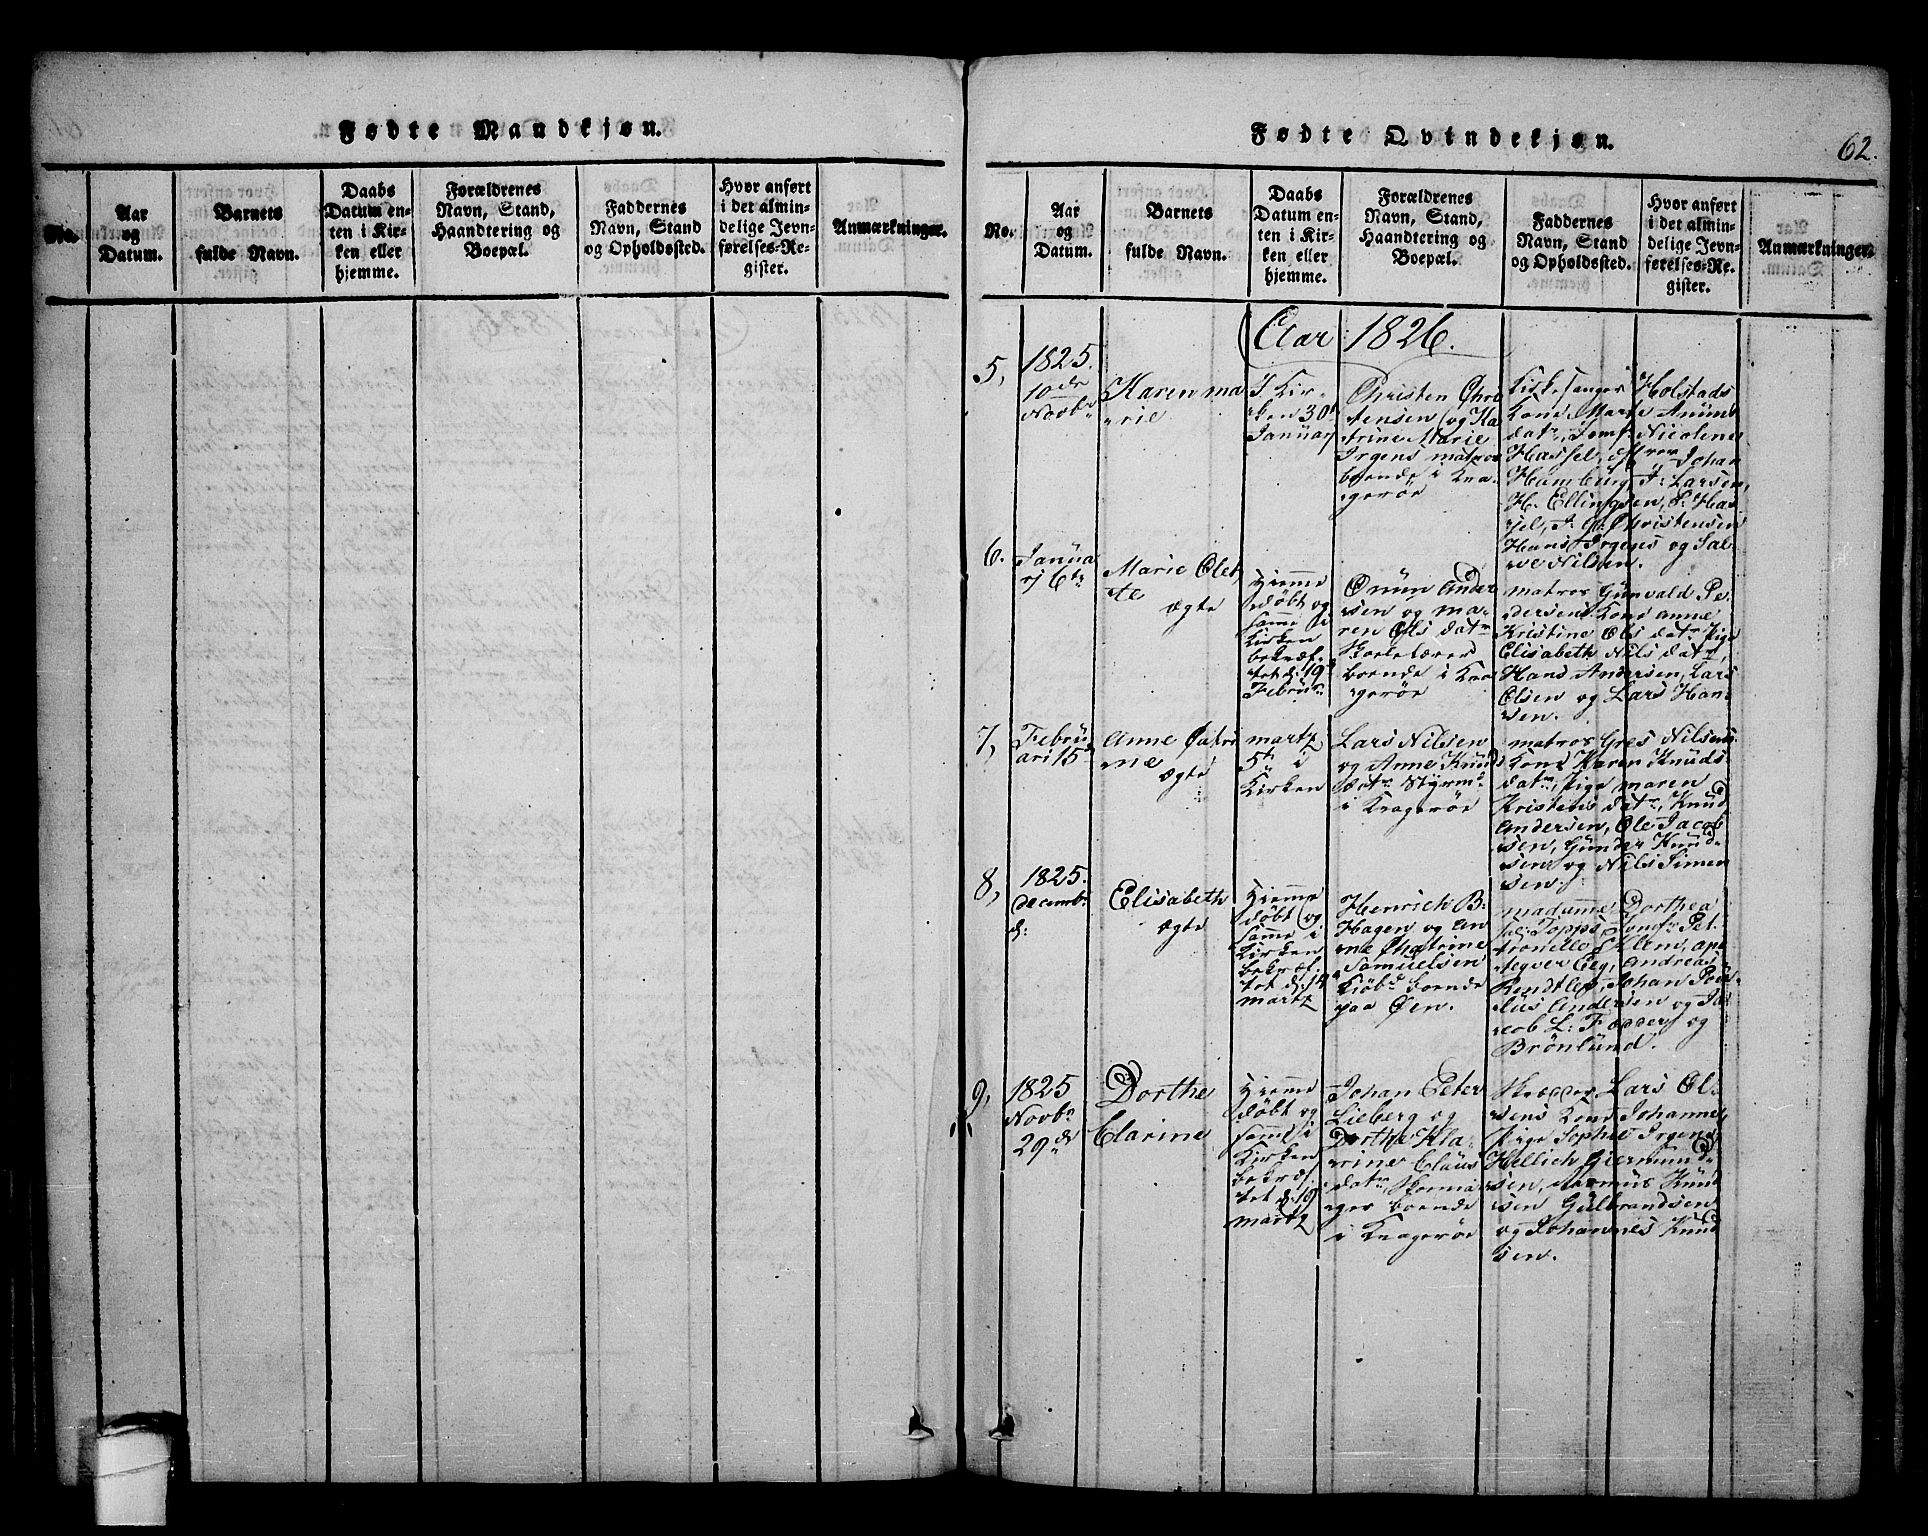 Fødte Mandkjøn.
No.
Aar
og
Datum.
Barnets
fulde Navn.
Daabs
Datum en-
ten i Kir-
ken eller
hjemme.
Forældrenes
Navn, Stand,
Haandtering og
Boepæl.
Faddernes
Navn, Stand
og Opholdssted.
Hvor anført
i det almin-
delige Jevn-
førelses-Re-
gister.
Anmærkninger.
Fødte Qvindekjøn.
62.
No.
Aar
og
Datum.
Barnets
fulde Navn.
Daabs
Datum en-
ten i Kir-
ken eller
hjemme.
Forældrenes
Navn, Stand,
Haandtering og
Boepæl.
Faddernes
Navn, Stand
og Opholdssted.
Hvor anført
i det almin-
delige Jevn-
førelses-Re-
gister.
Anmærkninger.
Aar 1826.
5,
1825.
10de
Novbr
Karen ma
rie
I Kir-
ken 30t
Januar
Christen Chri
stensen og Ka
trine Marie
Irgens matros
boende i Kra-
gerøe
Kirkesanger Holstads
Kone, Marte Anun
datr, Jomf: Nicolene
Hassel, Johan
Hamburg, J: Larsen,
H. Ellingsen, S: Has
sel, J. C: Christensen
Hans Irgens og Sal-
ve Nilsen.
6.
Janua
rj 6te
Marie Olet
te
ægte
Hiemme
døbt og
samme i
Kirken
bekræf-
tet d: 19de
Februr.
Onun Ander
sen og ma-
ren Ols datr
Skolelærer
boende i Kra
gerøe
matros Gunvald Pe-
dersens Kone anne
Kristine Ols datr Pige
Elisabeth Nils datr,
Hans Andersen, Lars
Olsen og Lars Han-
sen.
7,
Febru
ari 15de
Anne Catri
ne
ægte
martz
5te i
Kirken
Lars Nilsen
og Anne Knuds
datr Styrmd
i Kragerøe
matros Gres Nilsens
Kone Karen Knuds
datr, Pige maren
Kristens datr, Knud
Andersen, Ole Jacob
sen, Gunder Knud-
sen og Nils Simen
sen.
8,
1825.
decembr
d:
Elisabeth
ægte
Hiemme
døbt og
samme i
Kirken
bekræf-
tet d: 14
martz
Henrich B:
Hagen og An
ne Chatrine
Samuelsen
Kiøbd boende
paa Øen.
madamme Dorthea
Topps, Jomfr Pet
tronelle Klem, apo
teqver Eeg, Andreas
Rendtler, Johan Pou-
lus Andersen og Ja
cob L: og
Brønlund.
9,
1825
Novbr
29de
Dorthe
Clarine
Hiemme
døbt og
samme i
Kirken
bekræf-
tet d: 19
martz
Johan Peter
Lieberg og
Dorthe Kla-
rine Claus
datr,
ger boende
i Kragerøe
Lars Ol-
sens Kone Johanne
Pige Sophie Irgens
Hellich Giermund-
sen, Rasmus Knud
sen Gulbrandsen
og Johannes Knud
sen.